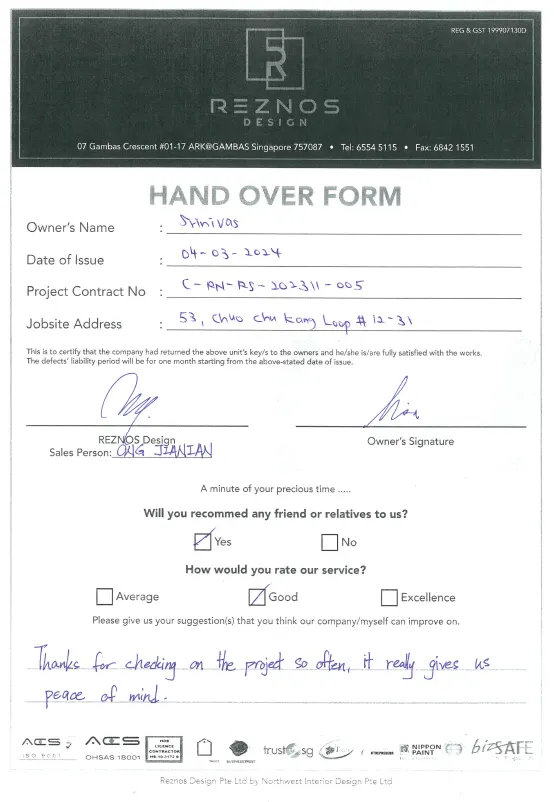 REG & GST 199907130D
REZNOS
DESIGN
07 Gambas Crescent #01-17 ARK@GAMBAS Singapore 757087 • Tel: 6554 5115 • Fax: 6842 1551
HAND OVER FORM
Owner's Name : Srinivas
Date of Issue : 04-03-2024
Project Contract No : C-RN-RS-202311-005
Jobsite Address : 53, Chuo Chu Kang Loop #12-31
This is to certify that the company had returned the above unit's key/s to the owners and he/she is/are fully satisfied with the works.
The defects' liability period will be for one month starting from the above-stated date of issue.
REZNOS Design
Owner's Signature
Sales Person: ONG JIANJAN
A minute of your precious time .....
Will you recommed any friend or relatives to us?
Yes No
How would you rate our service?
Average Good Excellence
Please give us your suggestion(s) that you think our company/myself can improve on.
Thanks for checking on the project so often, it really gives us
peace of mind.
ACS ACS HDB LICENCE CONTRACTOR trust sg NIPPON PAINT bizSAFE
ISO 9001 OHSAS 18001
Reznos Design Pte Ltd by Northwest Interior Design Pte Ltd